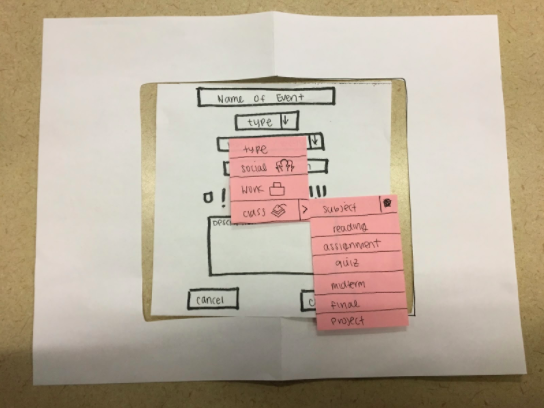 Name of Event
type
type
social
work
class >
subject
reading
assignment
quiz
midterm
final
project
cancel